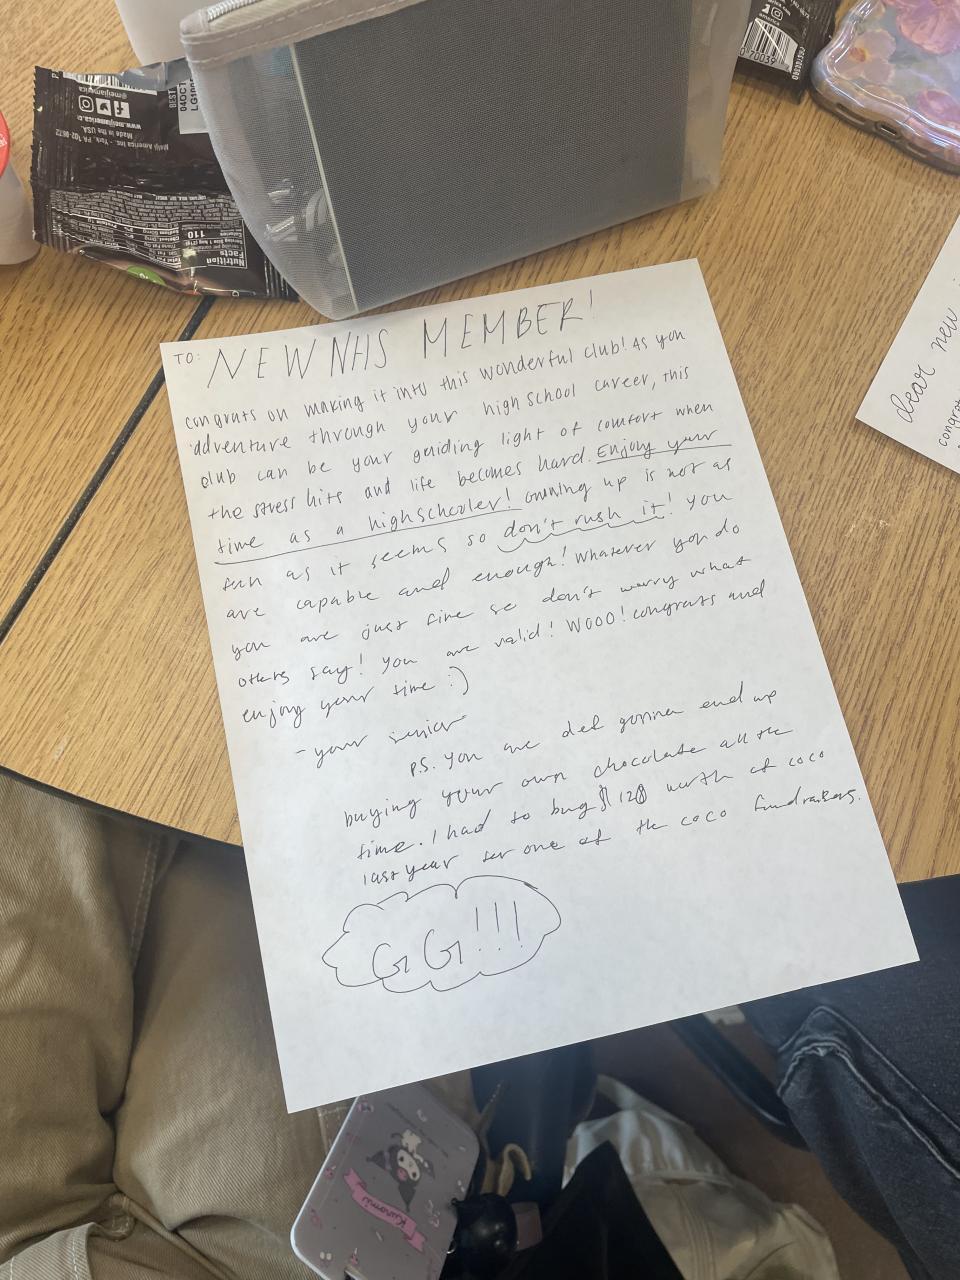 TO: NEW NHS MEMBER!
congrats on making it into this wonderful club! As you
adventure through your high school career, this
club can be your guiding light of comfort when
the stress hits and life becomes hard. Enjoy your
time as a highschooler! Growing up is not as
fun as it seems so don't rush it! You
are capable and enough! Whatever you do
you are just fine so don't worry what
others say! You are valid! WOOO! congrats and
enjoy your time :)
- your senior
P.S. You are def gonna end up
buying your own chocolate all the
time. I had to buy $120 worth of coco
last year for one of the coco fundraisers.
GG!!!
dear new
congrat
Nutrition
Facts
Calories
110
Meiji America Inc. - York, PA
Made in the USA
www.meijiamerica.c
@meijiamerica
BEST
04OCT
america
0 70039
Kuromi